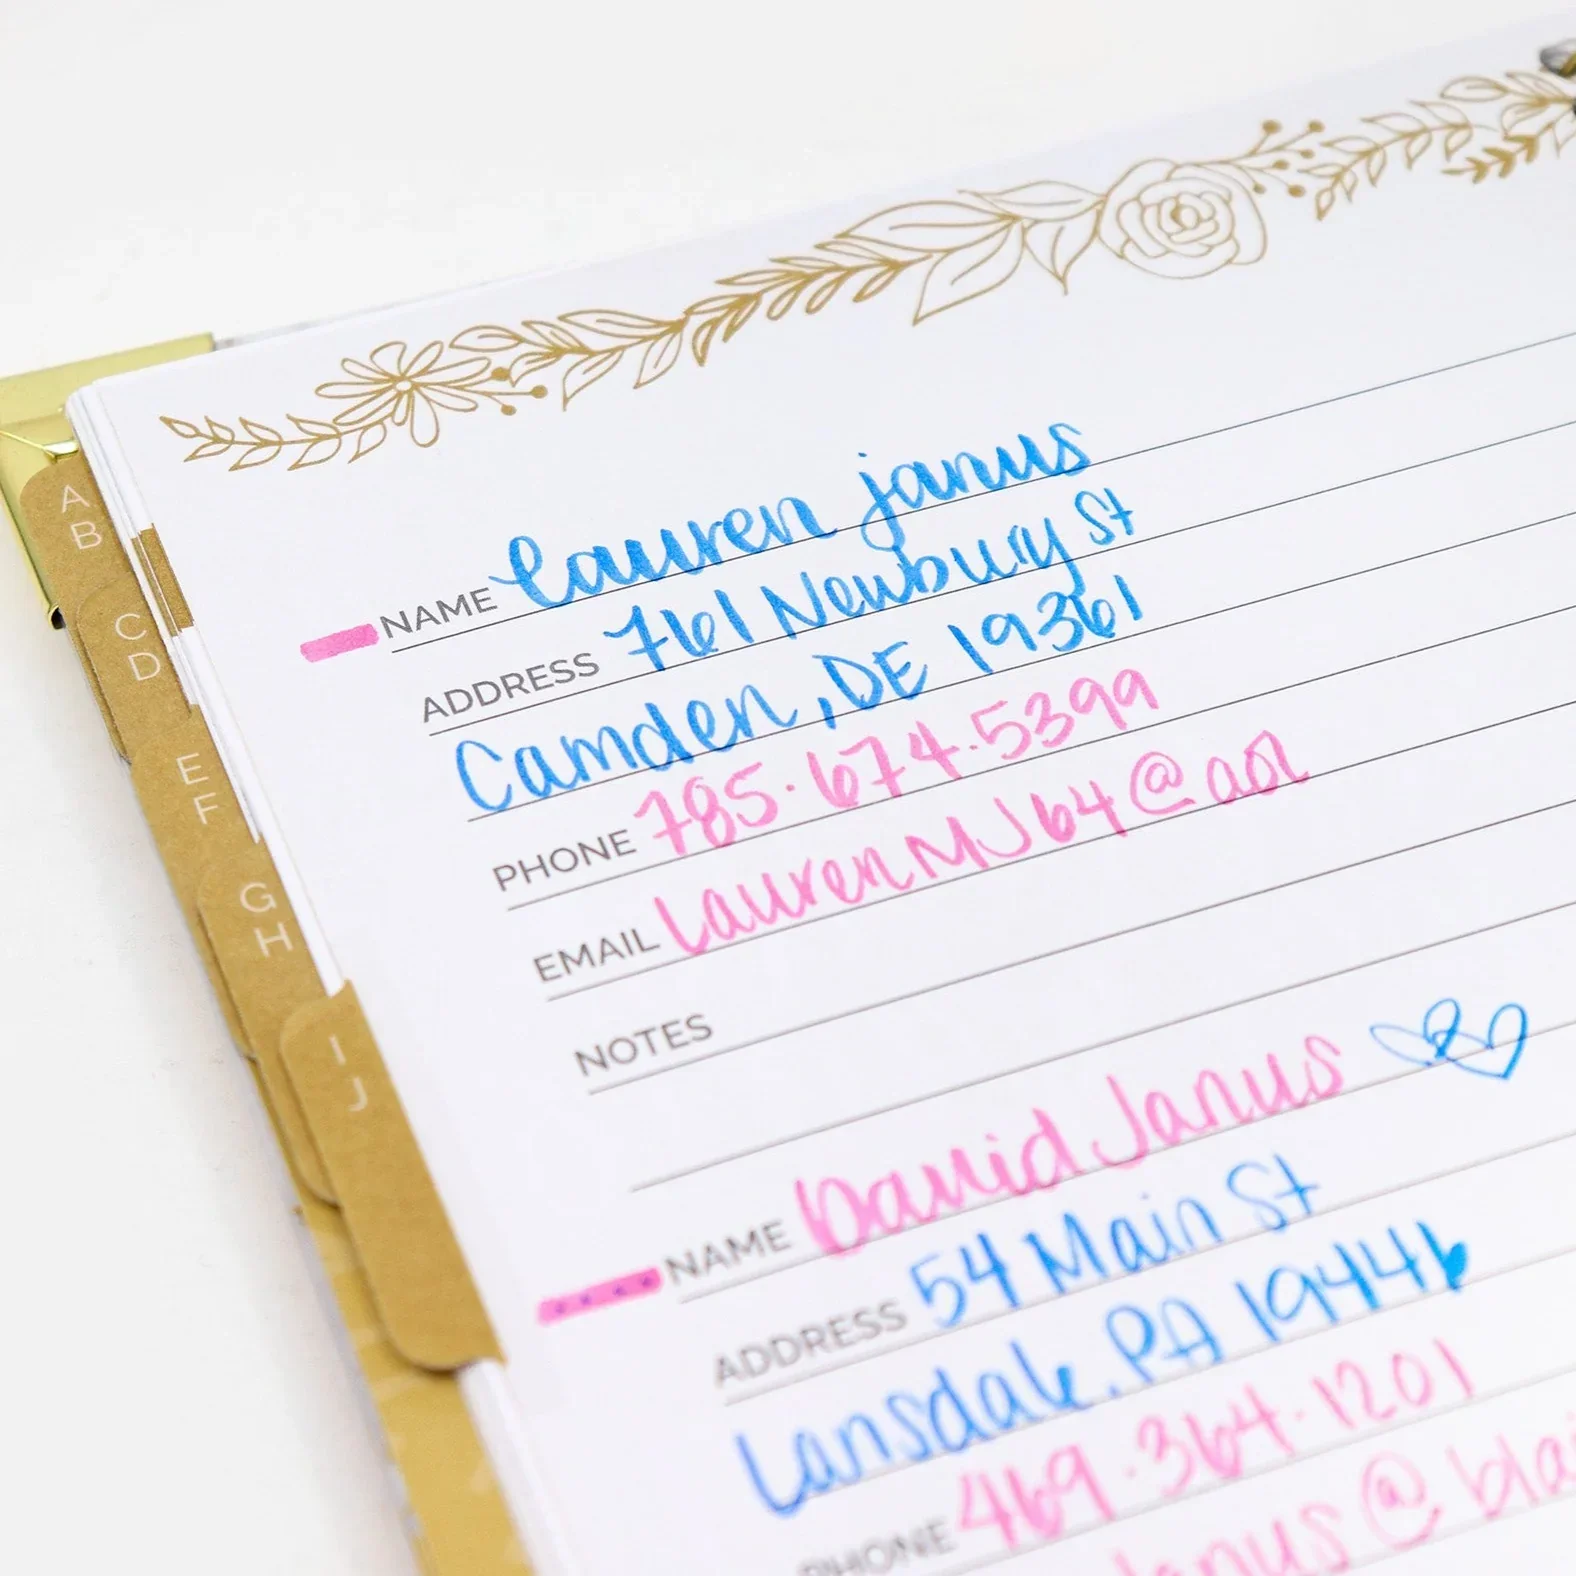 A
B
C
D
E
F
G
H
I
J
NAME Lauren Janus
ADDRESS 761 Newbury St
Camden, DE 19361
PHONE 785.674.5399
EMAIL LaurenMJ64@aol
NOTES
NAME David Janus
ADDRESS 54 Main St
Lansdale, PA 19446
PHONE 469.364.1201
Janus@bla